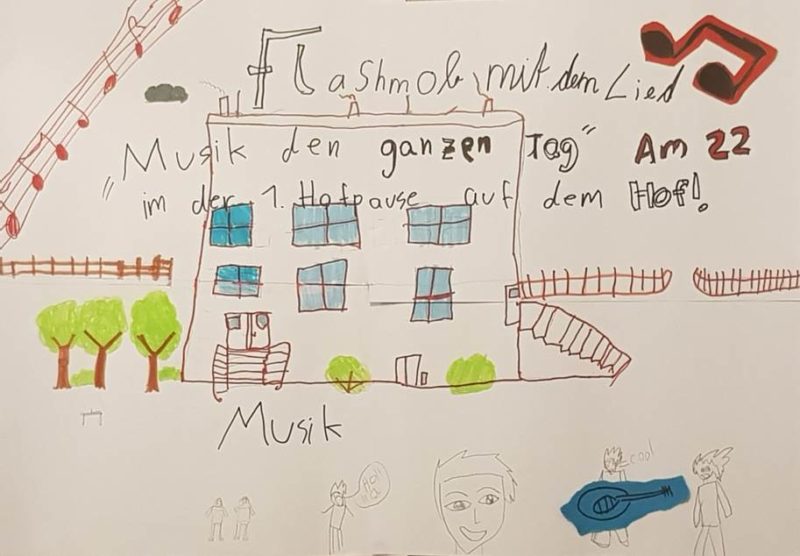 Flashmob mit dem Lied
„Musik den ganzen Tag“ Am 22
im der 1. Hofpause auf dem Hof!
Musik
cool